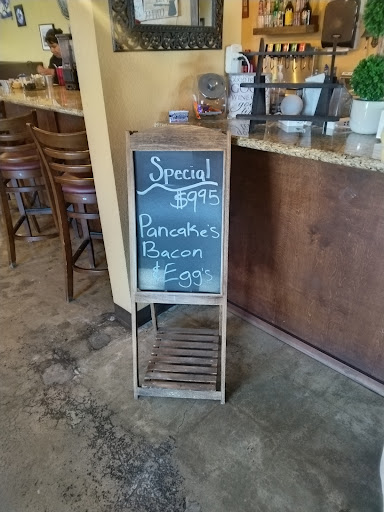 Special
$9.95
Pancake's
Bacon
& Egg's